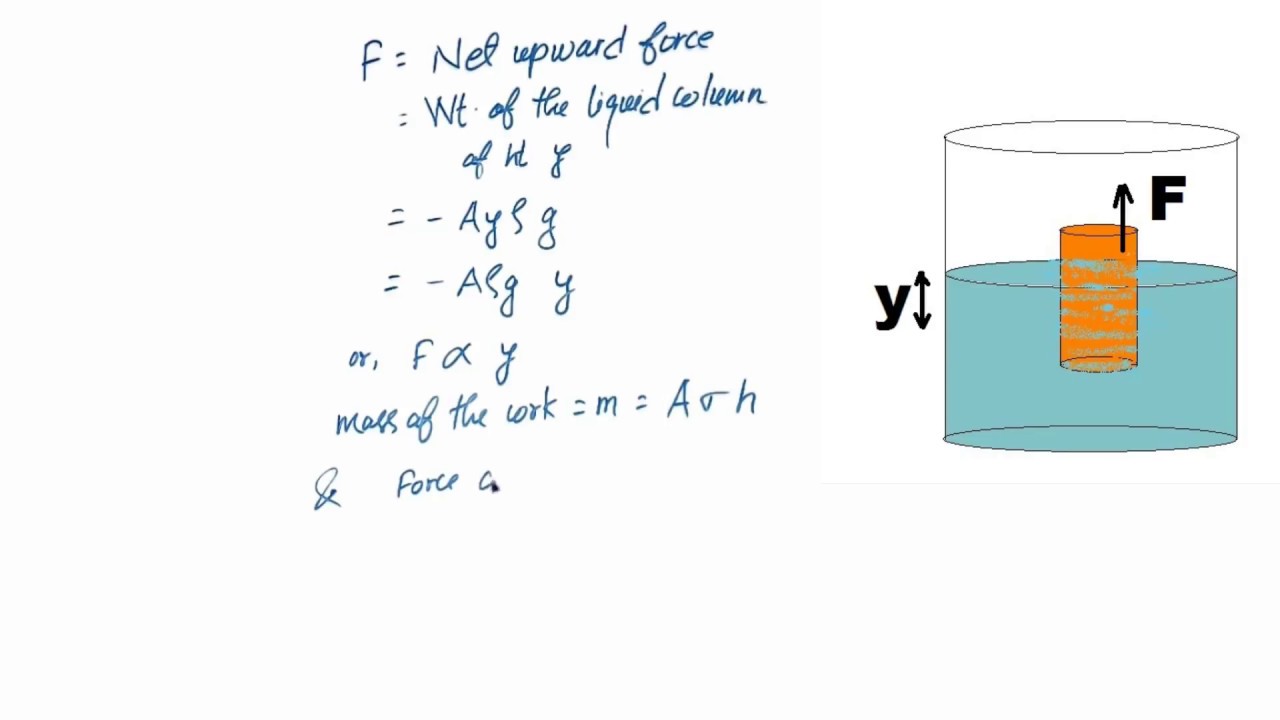 F = Net upward force
= Wt. of the liquid column
of ht y
= - Ayρg
= - Aρg y
or, F ∝ y
mass of the cork = m = Aσh
& Force a
F
y